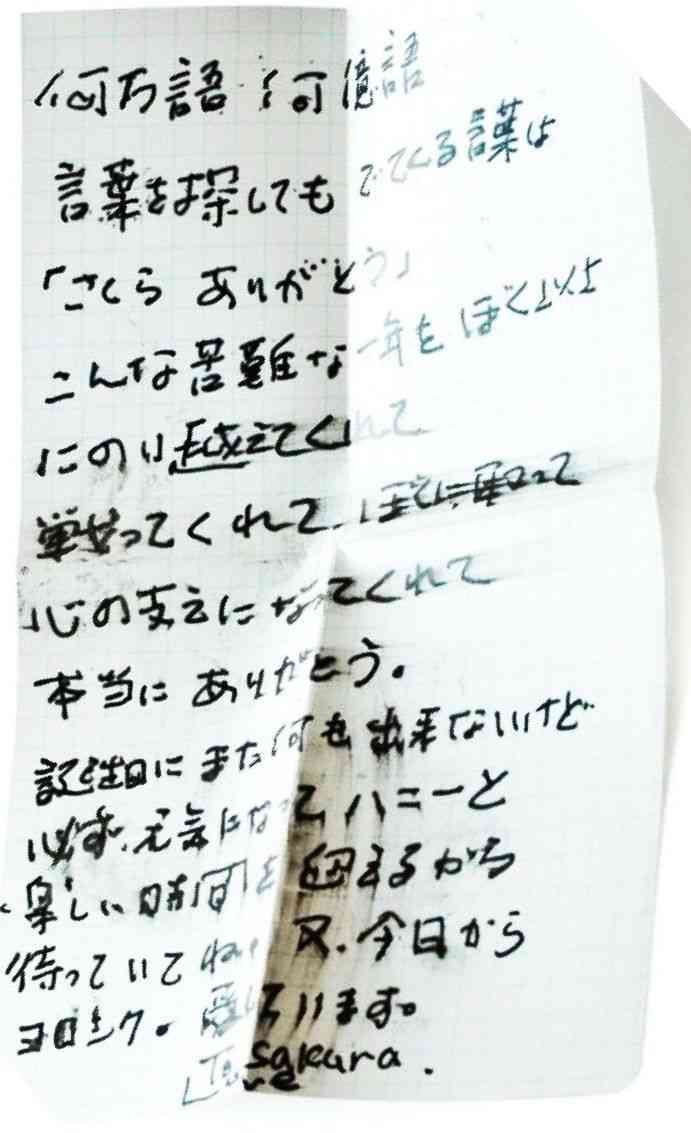 何万語 何億語
言葉を探しても でてくる言葉は
「さくら ありがとう」
こんな苦難な 一年をぼく以上
にのり越えてくれて
ってくれて ぼくに
心の支えになってくれて
本当に ありがとう。
誕生日に また何も出来ないけど
必ず、元気になって ハニーと
楽しい時間を 迎えるから
待っていてね。 又、今日から
ヨロシク。 愛しています。
sakura.